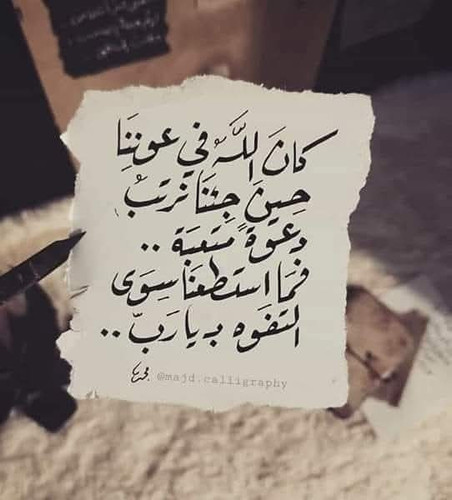 كانَ اللَّهُ في عوننَا
حينَ جِئنَا نرتبُ
دعوةً مُتعَبة ..
فمَا استطعنَا سِوَى
التفوه بـ يا ربّ ..
مجد @majd.calligraphy